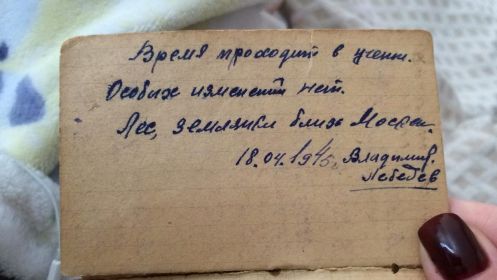 Время проходит в учении.
Особых изменений нет.
Лес, землянки близь Москвы.
18.04.1945. Владимир.
Лебедев